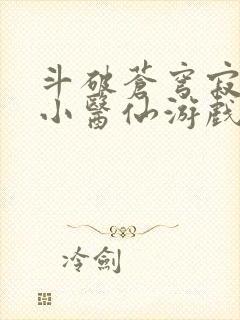 斗破蒼穹寂
小醫仙游戲
冷劍